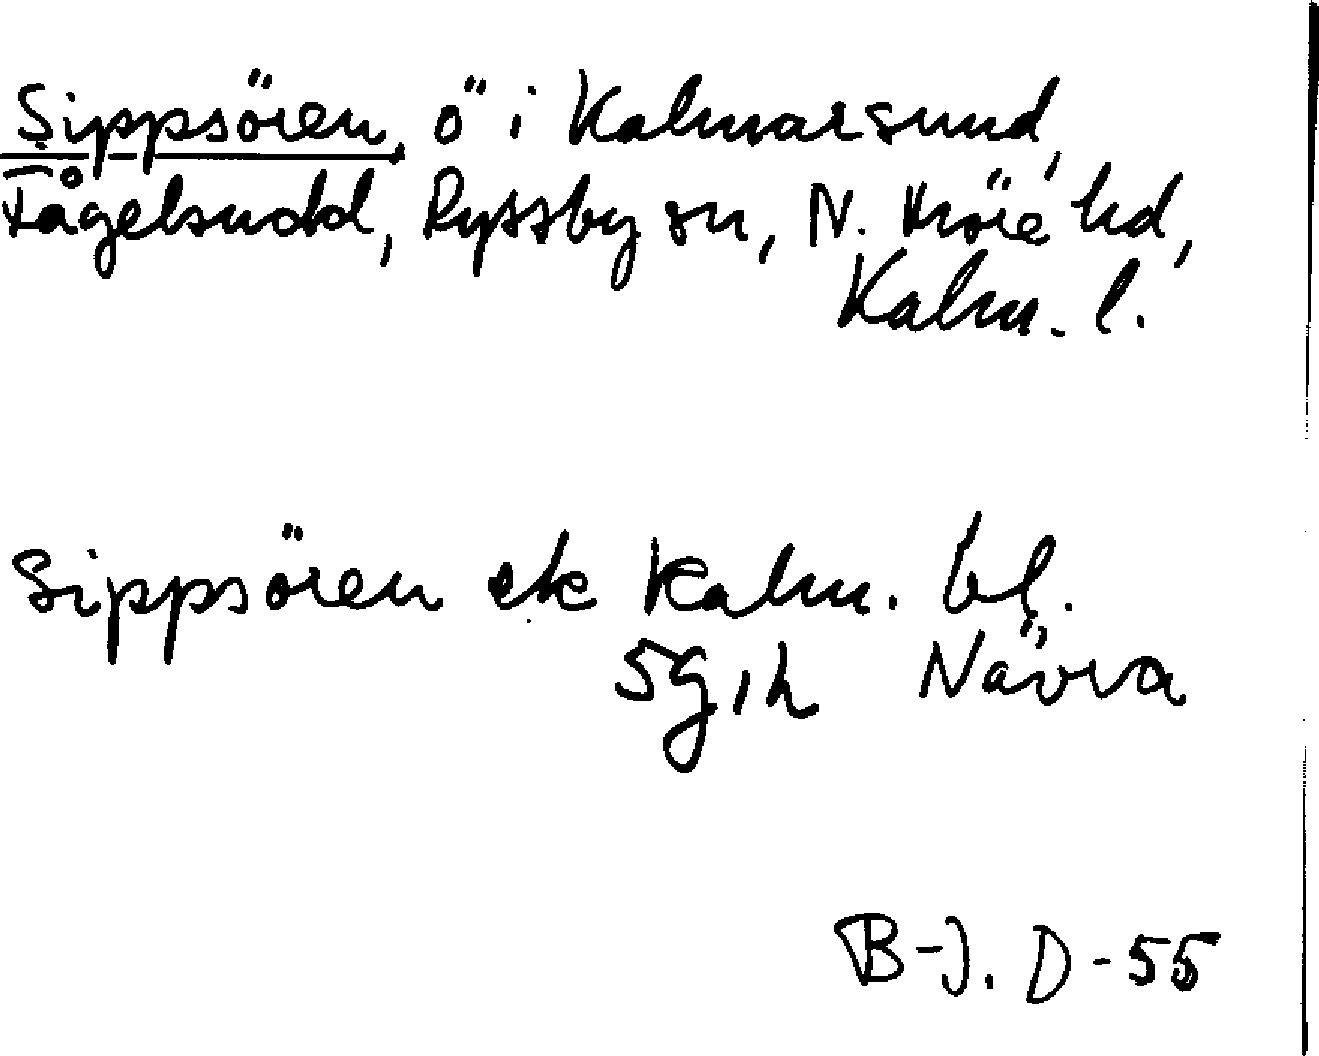 Sippsören, ö i Kalmarsund,
Fågelsudd, Ryssby sn, N. Möre hd,
Kalm. l.
Sippsören ek Kalm. bl.
5g, h Nävra
B-J. D-55